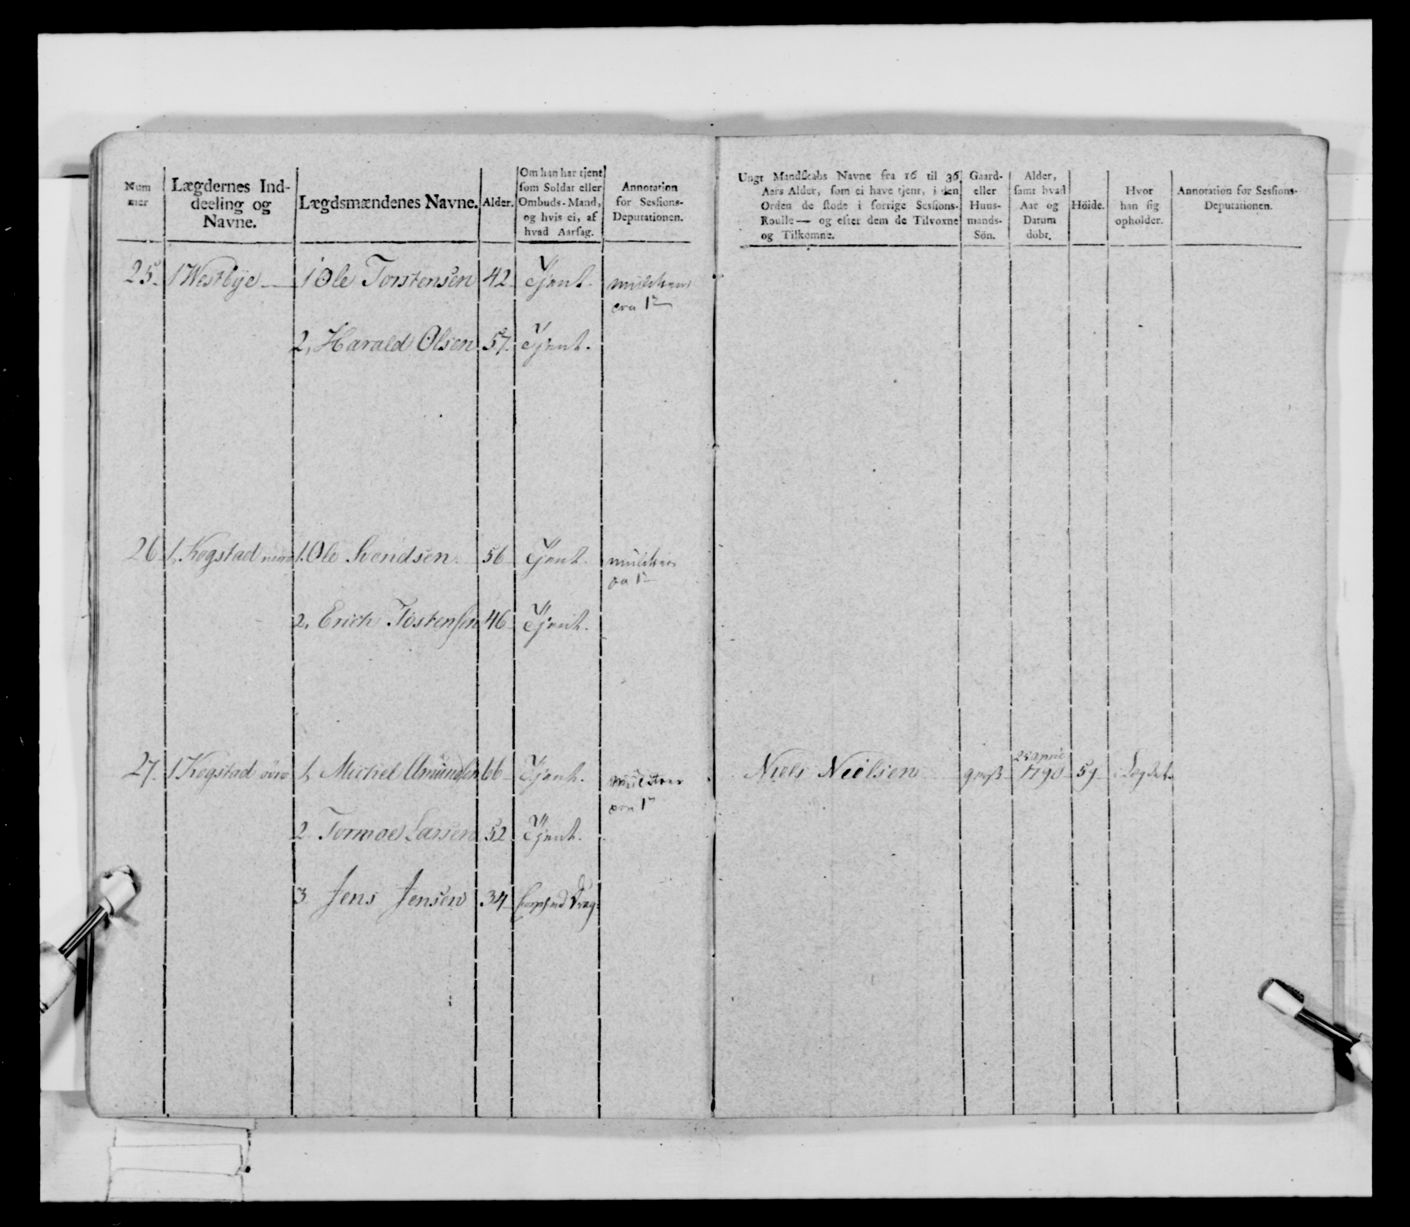 Num mer
Lægdernes Ind-
deeling og
Navne.
Lægdsmændenes Navne.
Alder.
Om han har tjent
som Soldat eller
Ombuds-Mand,
og hvis ei, af
hvad Aarsag.
Annotation
for Sessions-
Deputationen.
Ungt Mandskabs Navne fra 16 til 36
Aars Alder, som ei have tjent, i den
Orden de stode i forrige Sessions-
Roulle — og efter dem de Tilvoxne
og Tilkomne.
Gaard-
eller
Huus-
mands-
Sön.
Alder,
samt hvad
Aar og
Datum
döbt.
Höide.
Hvor
han sig
opholder.
Annotation for Sessions-
Deputationen.
25. 1 Westbye 1 Ole Torstensen 42 Tjent.
1
2, Harald Olsen 57. Tjent.
26 1, Kogstad 1. Ole Svendsen. 56 Tjent.
1
2, Erich Tostensen 46 Tjent.
27. 1 Kogstad övre 1, Michel Amundsen 66 Tjent. Niels Nielsen 1790 59
1
2. Tormoe Larsen 52 Tjent.
3 Jens Jensen 34